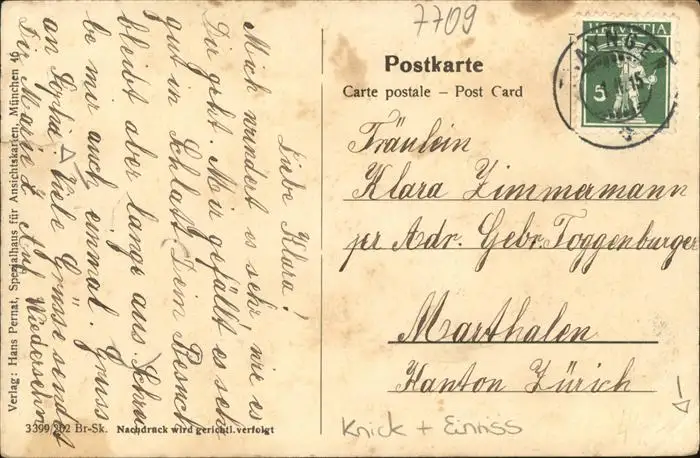 7709
HELVETIA
5
Postkarte
Carte postale – Post Card
Fräulein
Klara Zimmermann
pr Adr. Gebr. Toggenburger
Marthalen
Kanton Zürich
Liebe Klara!
Mich wundert es sehr wie es
Dir geht. Mir gefällt es sehr
gut in Schlatt. Dein Besuch
bleibt aber lange aus. Schrei
be mir auch einmal. Gruss
an Sophie. Viele Grüsse sendet
Dir Auf Wiedersehn
Verlag: Hans Pernat, Spezialhaus für Ansichtskarten, München 46
3399/202 Br-Sk. Nachdruck wird gerichtl. verfolgt
Knick + Einriss